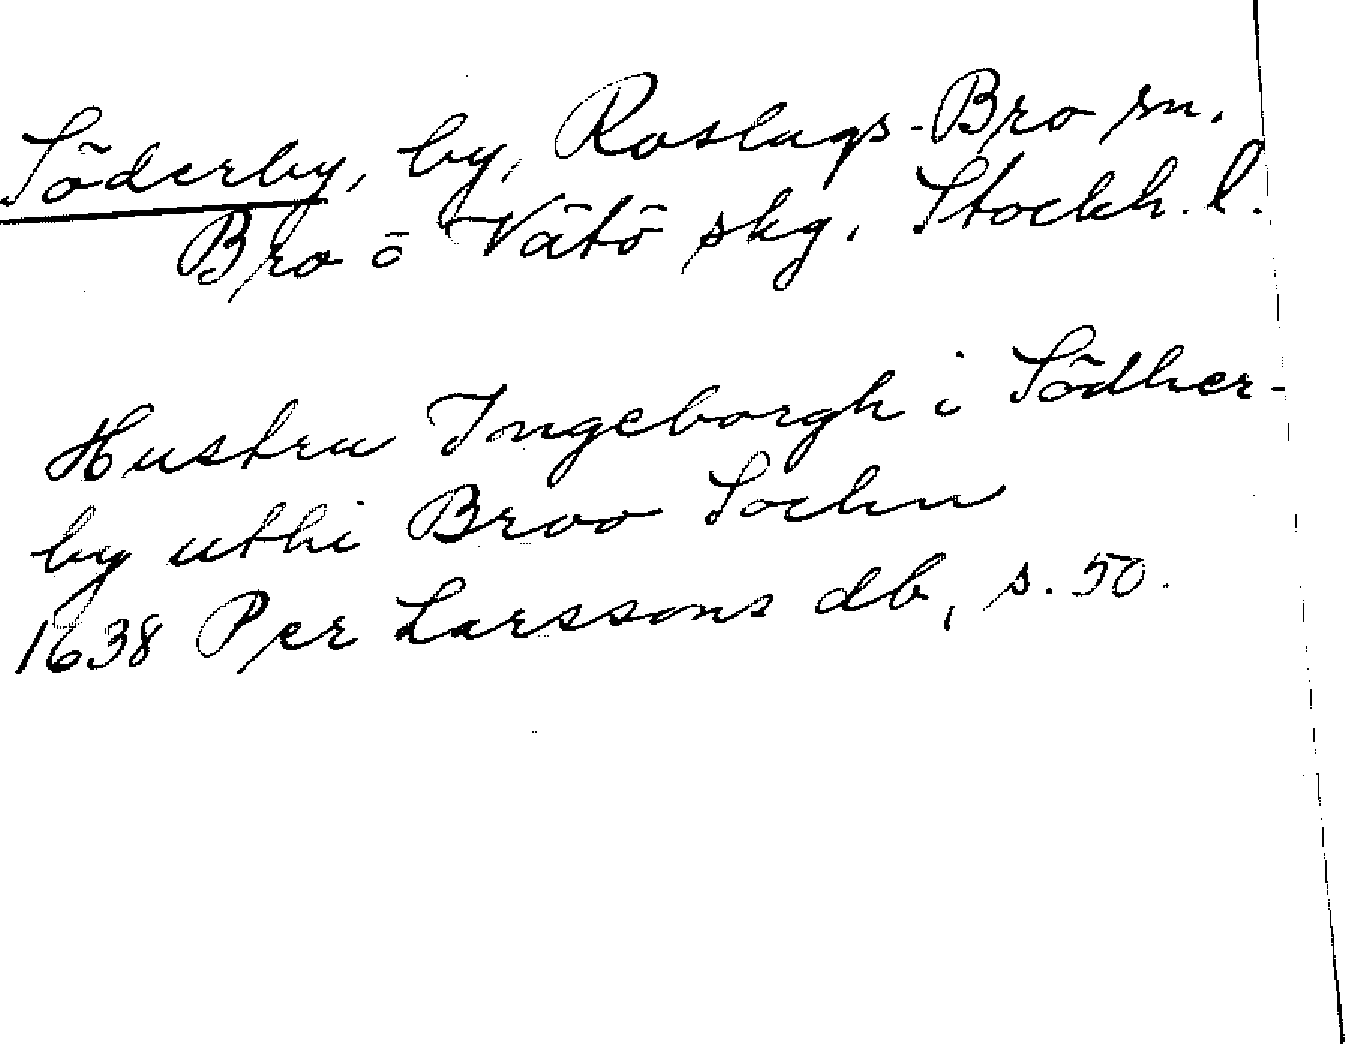 Söderby, by, Roslags-Bro sn.
Bro o Vätö skg. Stockh. l.
Hustru Ingeborgh i Södher-
by uthi Broo Sochn
1638 Per Larssons db, s. 50.